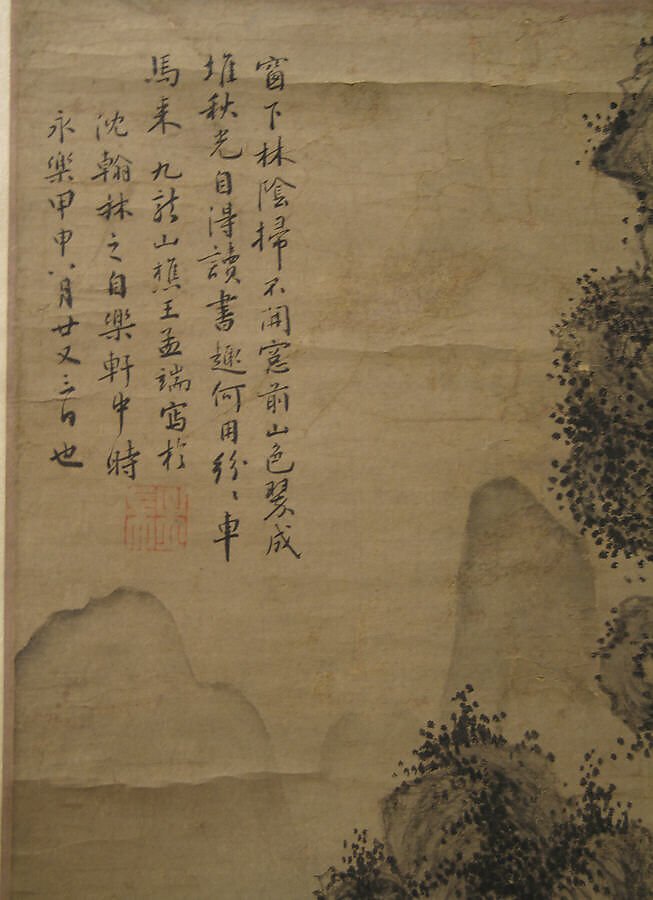 窗下林陰掃不開窓前山色翠成
堆秋光自得讀書趣何用紛〻車
馬来 九龍山樵王孟端寫於
沈翰林之自樂軒中時
永樂甲申八月廿又三日也